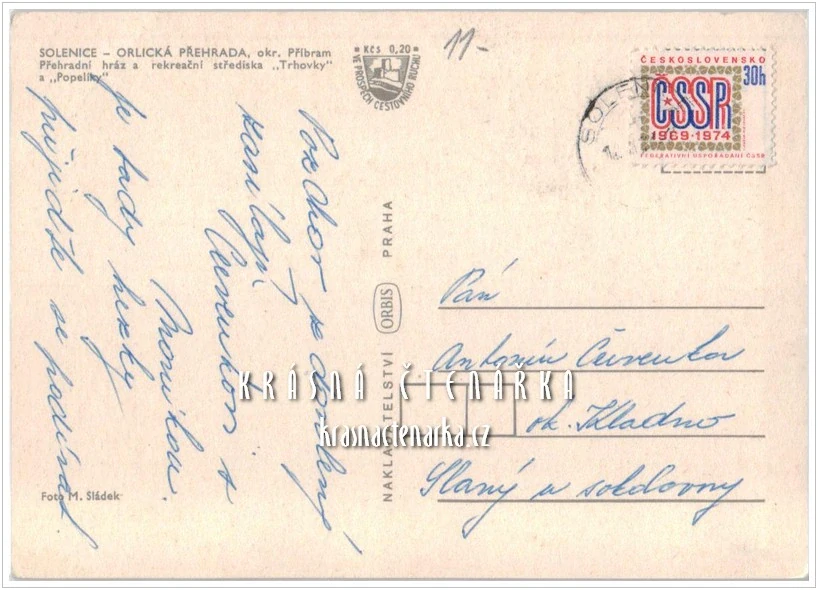 SOLENICE – ORLICKÁ PŘEHRADA, okr. Příbram
Přehradní hráz a rekreační střediska „Trhovky"
a „Popelíky"
Kčs 0,20
VE PROSPĚCH CESTOVNÍHO RUCHU
11-
SOLEN
ČESKOSLOVENSKO
30h
ČSSR
1969-1974
FEDERATIVNÍ USPOŘÁDÁNÍ ČSSR
Pozdrav z dovolený
zasílají
Červenkovi s
Monikou.
Je tady hezky
přijeďte se podívat.
NAKLADATELSTVÍ ORBIS PRAHA
Pán
Antonín Červenka
ok. Kladno
Slaný u sokolovny
Foto M. Sládek
KRÁSNÁ ČTENÁRKA
krasnactenarka.cz